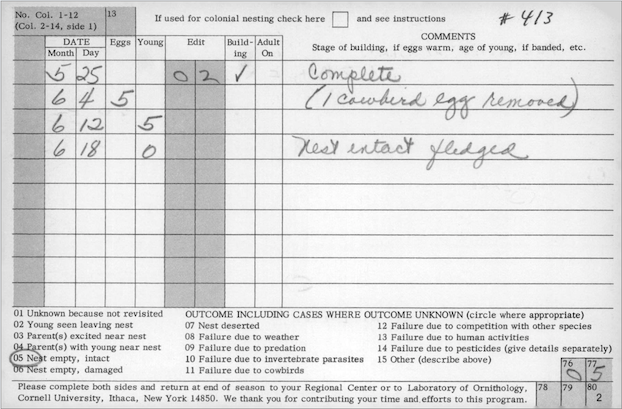 No. Col. 1-12
(Col. 2-14, side 1)
13
If used for colonial nesting check here and see instructions
# 413
DATE
Month Day
Eggs
Young
Edit
Build-
ing
Adult
On
COMMENTS
Stage of building, if eggs warm, age of young, if banded, etc.
5 25 0 2 ✓ Complete
6 4 5 (1 cowbird egg removed)
6 12 5
6 18 0 Nest intact fledged
01 Unknown because not revisited
02 Young seen leaving nest
03 Parent(s) excited near nest
04 Parent(s) with young near nest
05 Nest empty, intact
06 Nest empty, damaged
OUTCOME INCLUDING CASES WHERE OUTCOME UNKNOWN (circle where appropriate)
07 Nest deserted
08 Failure due to weather
09 Failure due to predation
10 Failure due to invertebrate parasites
11 Failure due to cowbirds
12 Failure due to competition with other species
13 Failure due to human activities
14 Failure due to pesticides (give details separately)
15 Other (describe above)
76 77
0 5
Please complete both sides and return at end of season to your Regional Center or to Laboratory of Ornithology,
Cornell University, Ithaca, New York 14850. We thank you for contributing your time and efforts to this program.
78 79 80
2